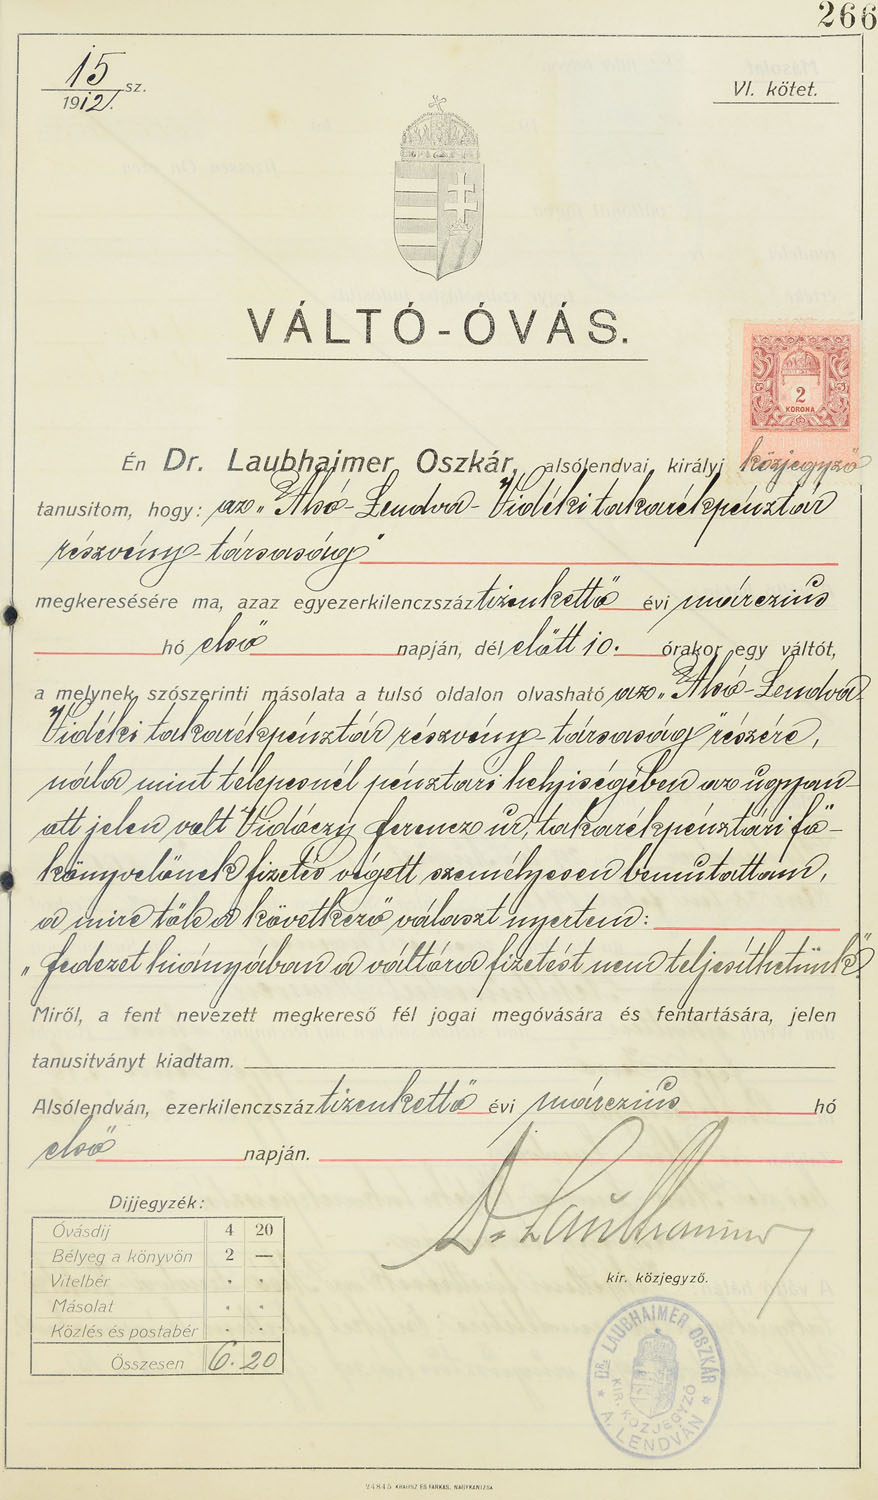 266
15
1912. sz.
VI. kötet.
VÁLTÓ-ÓVÁS.
2
KORONA
Én Dr. Laubhaimer Oszkár, alsólendvai királyi közjegyző
tanusitom, hogy: az „Alsó-Lendva-Vidéki takarékpénztár
részvény-társaság"
megkeresésére ma, azaz egyezerkilenczszáz tizenkettő évi márczius
hó első napján, dél előtt 10. órakor egy váltót,
a melynek szószerinti másolata a tulsó oldalon olvasható az „Alsó-Lendva-
Vidéki takarékpénztár részvény-társaság" részére,
nála mint telepesnél pénztári helyiségében az ugyan-
ott jelen volt Vidóczy Ferencz ur, takarékpénztári fő-
könyvelőnek fizetés végett személyesen bemutattam,
a mire tőle a következő választ nyertem:
„Fedezet hiányában a váltóra fizetést nem teljesíthetünk."
Miről, a fent nevezett megkereső fél jogai megóvására és fentartására, jelen
tanusitványt kiadtam.
Alsólendván, ezerkilenczszáz tizenkettő évi márczius hó
első napján.
Dr Laubhaimer
kir. közjegyző.
Dijjegyzék:
Óvásdij 4 20
Bélyeg a könyvön 2 —
Vitelbér . .
Másolat . .
Közlés és postabér . .
Összesen 6. 20
* DR. LAUBHAIMER OSZKÁR *
KIR. KÖZJEGYZŐ
A. LENDVÁN
24845 KRAUSZ ÉS FARKAS, NAGYKANIZSA